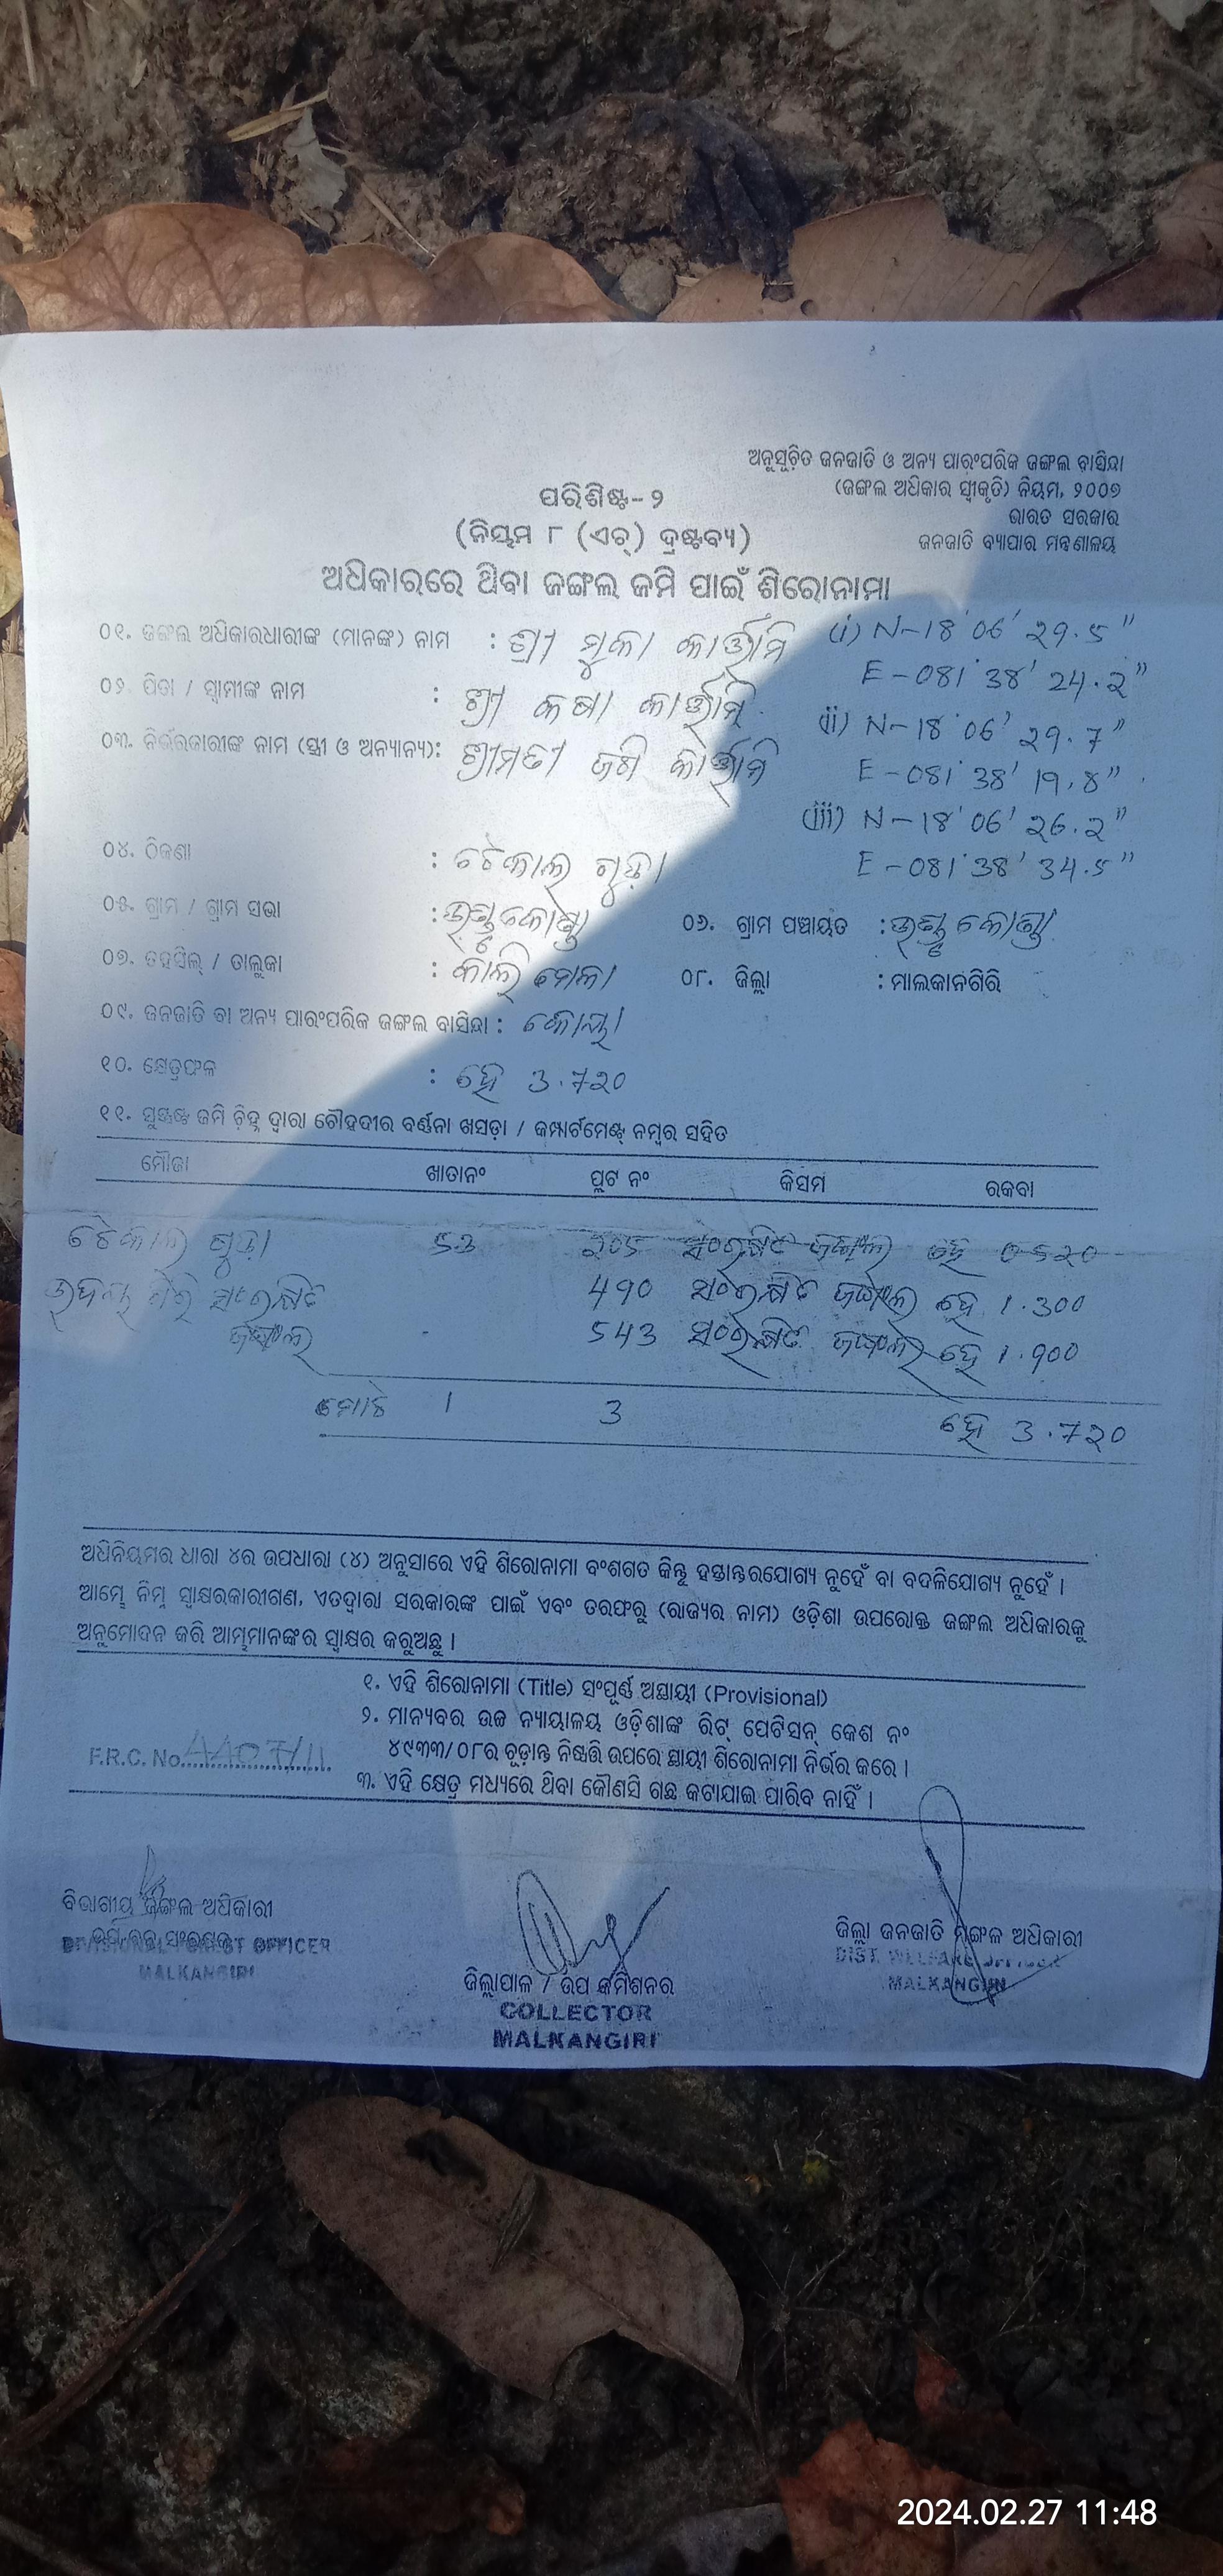 ଅନୁସୂଚିତ ଜନଜାତି ଓ ଅନ୍ୟ ପାରଂପରିକ ଜଙ୍ଗଲ ବାସିନ୍ଦା
(ଜଙ୍ଗଲ ଅଧିକାର ସ୍ୱୀକୃତି) ନିୟମ, ୨୦୦୭
ଭାରତ ସରକାର
ଜନଜାତି ବ୍ୟାପାର ମନ୍ତ୍ରଣାଳୟ
ପରିଶିଷ୍ଟ-୨
(ନିୟମ ୮ (ଏଚ୍) ଦ୍ରଷ୍ଟବ୍ୟ)
ଅଧିକାରରେ ଥିବା ଜଙ୍ଗଲ ଜମି ପାଇଁ ଶିରୋନାମା
୦୧. ଜଙ୍ଗଲ ଅଧିକାରଧାରୀଙ୍କ (ମାନଙ୍କ) ନାମ : ଶ୍ରୀ ମୁକା କାର୍ତ୍ତାମି (i) N-18°06' 29.5"
E-081°38' 24.2"
୦୨. ପିତା / ସ୍ୱାମୀଙ୍କ ନାମ : ଶ୍ରୀ କଷା କାର୍ତ୍ତାମି (ii) N-18°06' 29.7"
୦୩. ନିର୍ଭରକାରୀଙ୍କ ନାମ (ସ୍ତ୍ରୀ ଓ ଅନ୍ୟାନ୍ୟ): ଶ୍ରୀମତୀ କାର୍ତ୍ତାମି E-081°38' 19.8"
(iii) N-18°06' 26.2"
୦୪. ଠିକଣା : ଟେକାଲ ଗୁଡ଼ା E-081°38' 34.5"
୦୫. ଗ୍ରାମ / ଗ୍ରାମ ସଭା : ୦୬. ଗ୍ରାମ ପଞ୍ଚାୟତ :
୦୭. ତହସିଲ୍ / ତାଲୁକା : କାଲିମେଳା ୦୮. ଜିଲ୍ଲା : ମାଲକାନଗିରି
୦୯. ଜନଜାତି ବା ଅନ୍ୟ ପାରଂପରିକ ଜଙ୍ଗଲ ବାସିନ୍ଦା : କୋୟା
୧୦. କ୍ଷେତ୍ରଫଳ : ହେ 3.720
୧୧. ସୁସ୍ପଷ୍ଟ ଜମି ଚିହ୍ନ ଦ୍ୱାରା ଚୌହଦୀର ବର୍ଣ୍ଣନା ଖସଡ଼ା / କମ୍ପାର୍ଟମେଣ୍ଟ୍ ନମ୍ବର ସହିତ
ମୌଜା ଖାତାନଂ ପ୍ଲଟ ନଂ କିସମ ରକବା
ଟେକାଲ ଗୁଡ଼ା 53 205 ସଂରକ୍ଷିତ ଜଙ୍ଗଲ ହେ 0.520
ଉଦୟ ଗିରି ସଂରକ୍ଷିତ 490 ସଂରକ୍ଷିତ ଜଙ୍ଗଲ ହେ 1.300
ଜଙ୍ଗଲ 543 ସଂରକ୍ଷିତ ଜଙ୍ଗଲ ହେ 1.900
ମୋଟ 1 3 ହେ 3.720
ଅଧିନିୟମର ଧାରା ୪ର ଉପଧାରା (୪) ଅନୁସାରେ ଏହି ଶିରୋନାମା ବଂଶଗତ କିନ୍ତୁ ହସ୍ତାନ୍ତରଯୋଗ୍ୟ ନୁହେଁ ବା ବଦଳିଯୋଗ୍ୟ ନୁହେଁ ।
ଆମ୍ଭେ ନିମ୍ନ ସ୍ୱାକ୍ଷରକାରୀଗଣ, ଏତଦ୍ୱାରା ସରକାରଙ୍କ ପାଇଁ ଏବଂ ତରଫରୁ (ରାଜ୍ୟର ନାମ) ଓଡ଼ିଶା ଉପରୋକ୍ତ ଜଙ୍ଗଲ ଅଧିକାରକୁ
ଅନୁମୋଦନ କରି ଆମ୍ଭମାନଙ୍କର ସ୍ୱାକ୍ଷର କରୁଅଛୁ ।
୧. ଏହି ଶିରୋନାମା (Title) ସଂପୂର୍ଣ୍ଣ ଅସ୍ଥାୟୀ (Provisional)
୨. ମାନ୍ୟବର ଉଚ୍ଚ ନ୍ୟାୟାଳୟ ଓଡ଼ିଶାଙ୍କ ରିଟ୍ ପେଟିସନ୍ କେଶ ନଂ
୪୯୩୩/୦୮ର ଚୂଡ଼ାନ୍ତ ନିଷ୍ପତ୍ତି ଉପରେ ସ୍ଥାୟୀ ଶିରୋନାମା ନିର୍ଭର କରେ ।
F.R.C. No.
୩. ଏହି କ୍ଷେତ୍ର ମଧ୍ୟରେ ଥିବା କୌଣସି ଗଛ କଟାଯାଇ ପାରିବ ନାହିଁ ।
ବିଭାଗୀୟ ଜଙ୍ଗଲ ଅଧିକାରୀ
OFFICER
MALKANGIRI
ଜିଲ୍ଲାପାଳ / ଉପ କମିଶନର
COLLECTOR
MALKANGIRI
ଜିଲ୍ଲା ଜନଜାତି ମଙ୍ଗଳ ଅଧିକାରୀ
DIST. WELFARE OFFICER
MALKANGIRI
2024.02.27 11:48